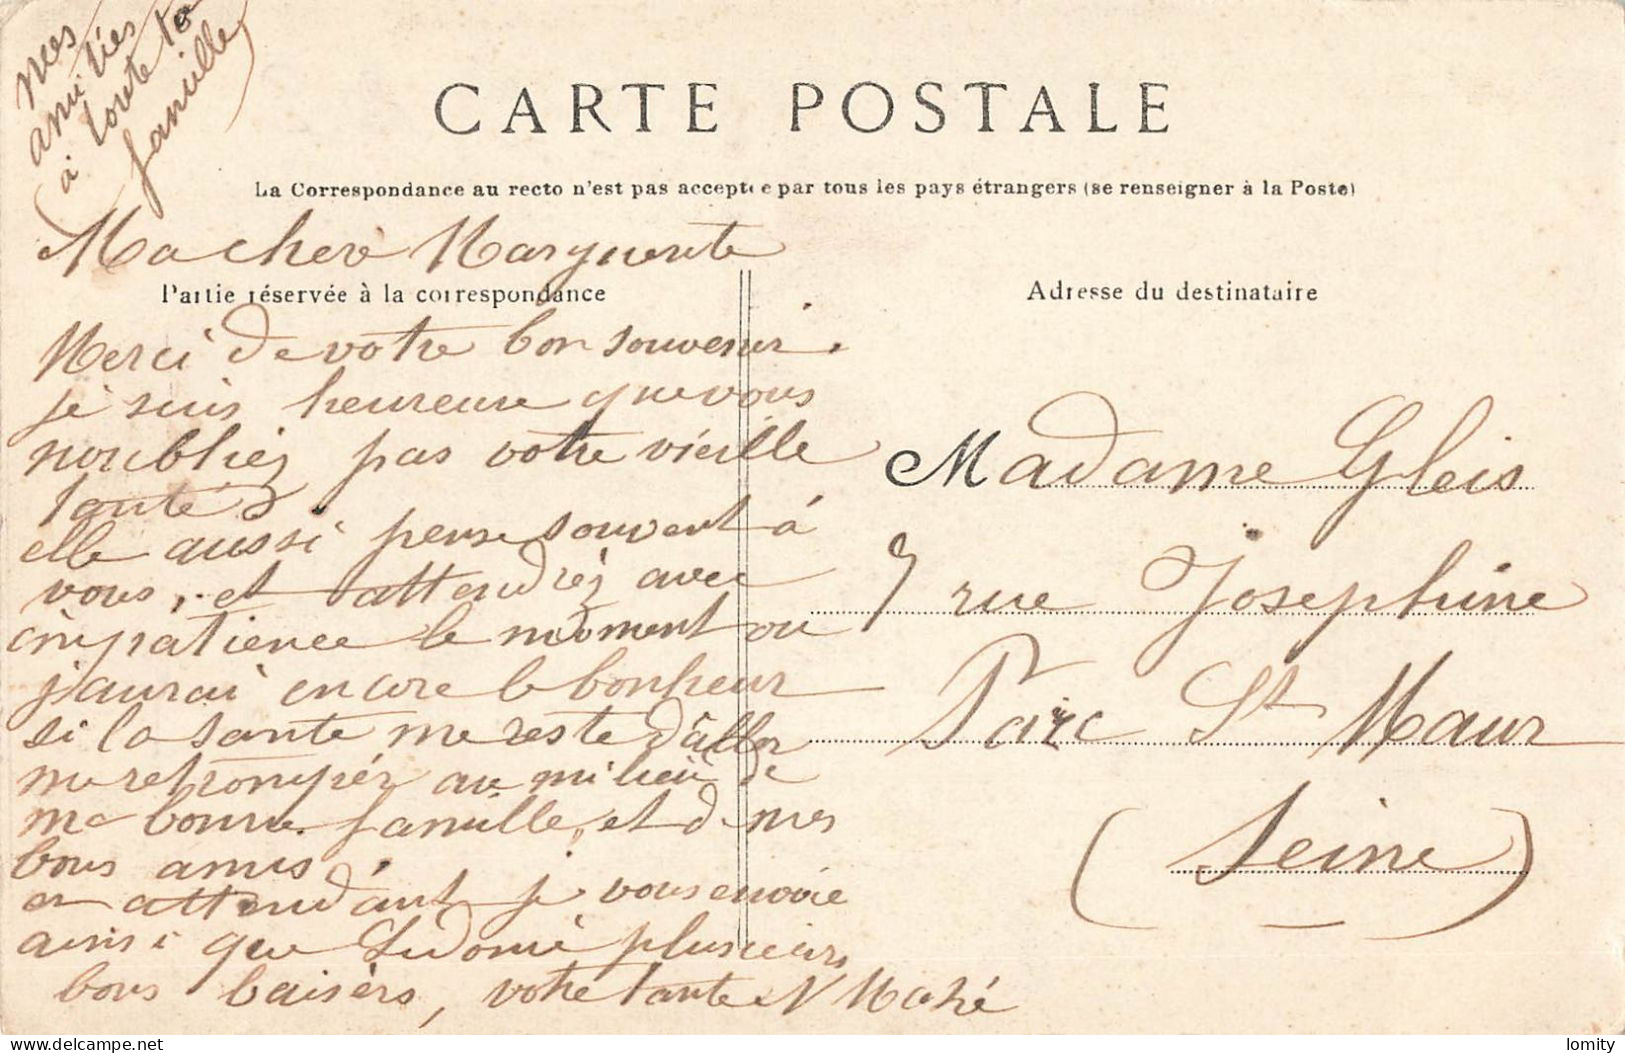 mes
amitiés
à toute ta
famille
CARTE POSTALE
La Correspondance au recto n'est pas acceptée par tous les pays étrangers (se renseigner à la Poste)
Ma cheré Marguerite
Partie réservée à la correspondance
Adresse du destinataire
Merci de votre bon souvenir.
je suis heureuse que vous
noubliez pas votre vieille
tante
elle aussi pense souvent à
vous, et attendréz avec
impatience le moment ou
j'aurai encore le bonheur
si la sante me reste d'aller
me retrompér au milieu de
ma bonne famille, et de mes
bons amis,
en attendant je vous envoie
ainsi que Sidonie plusieurs
bons baisérs, votre tante Mahé
Madame Gleis
7 rue Joséphine
Parc St Maur
(Seine)
lomity